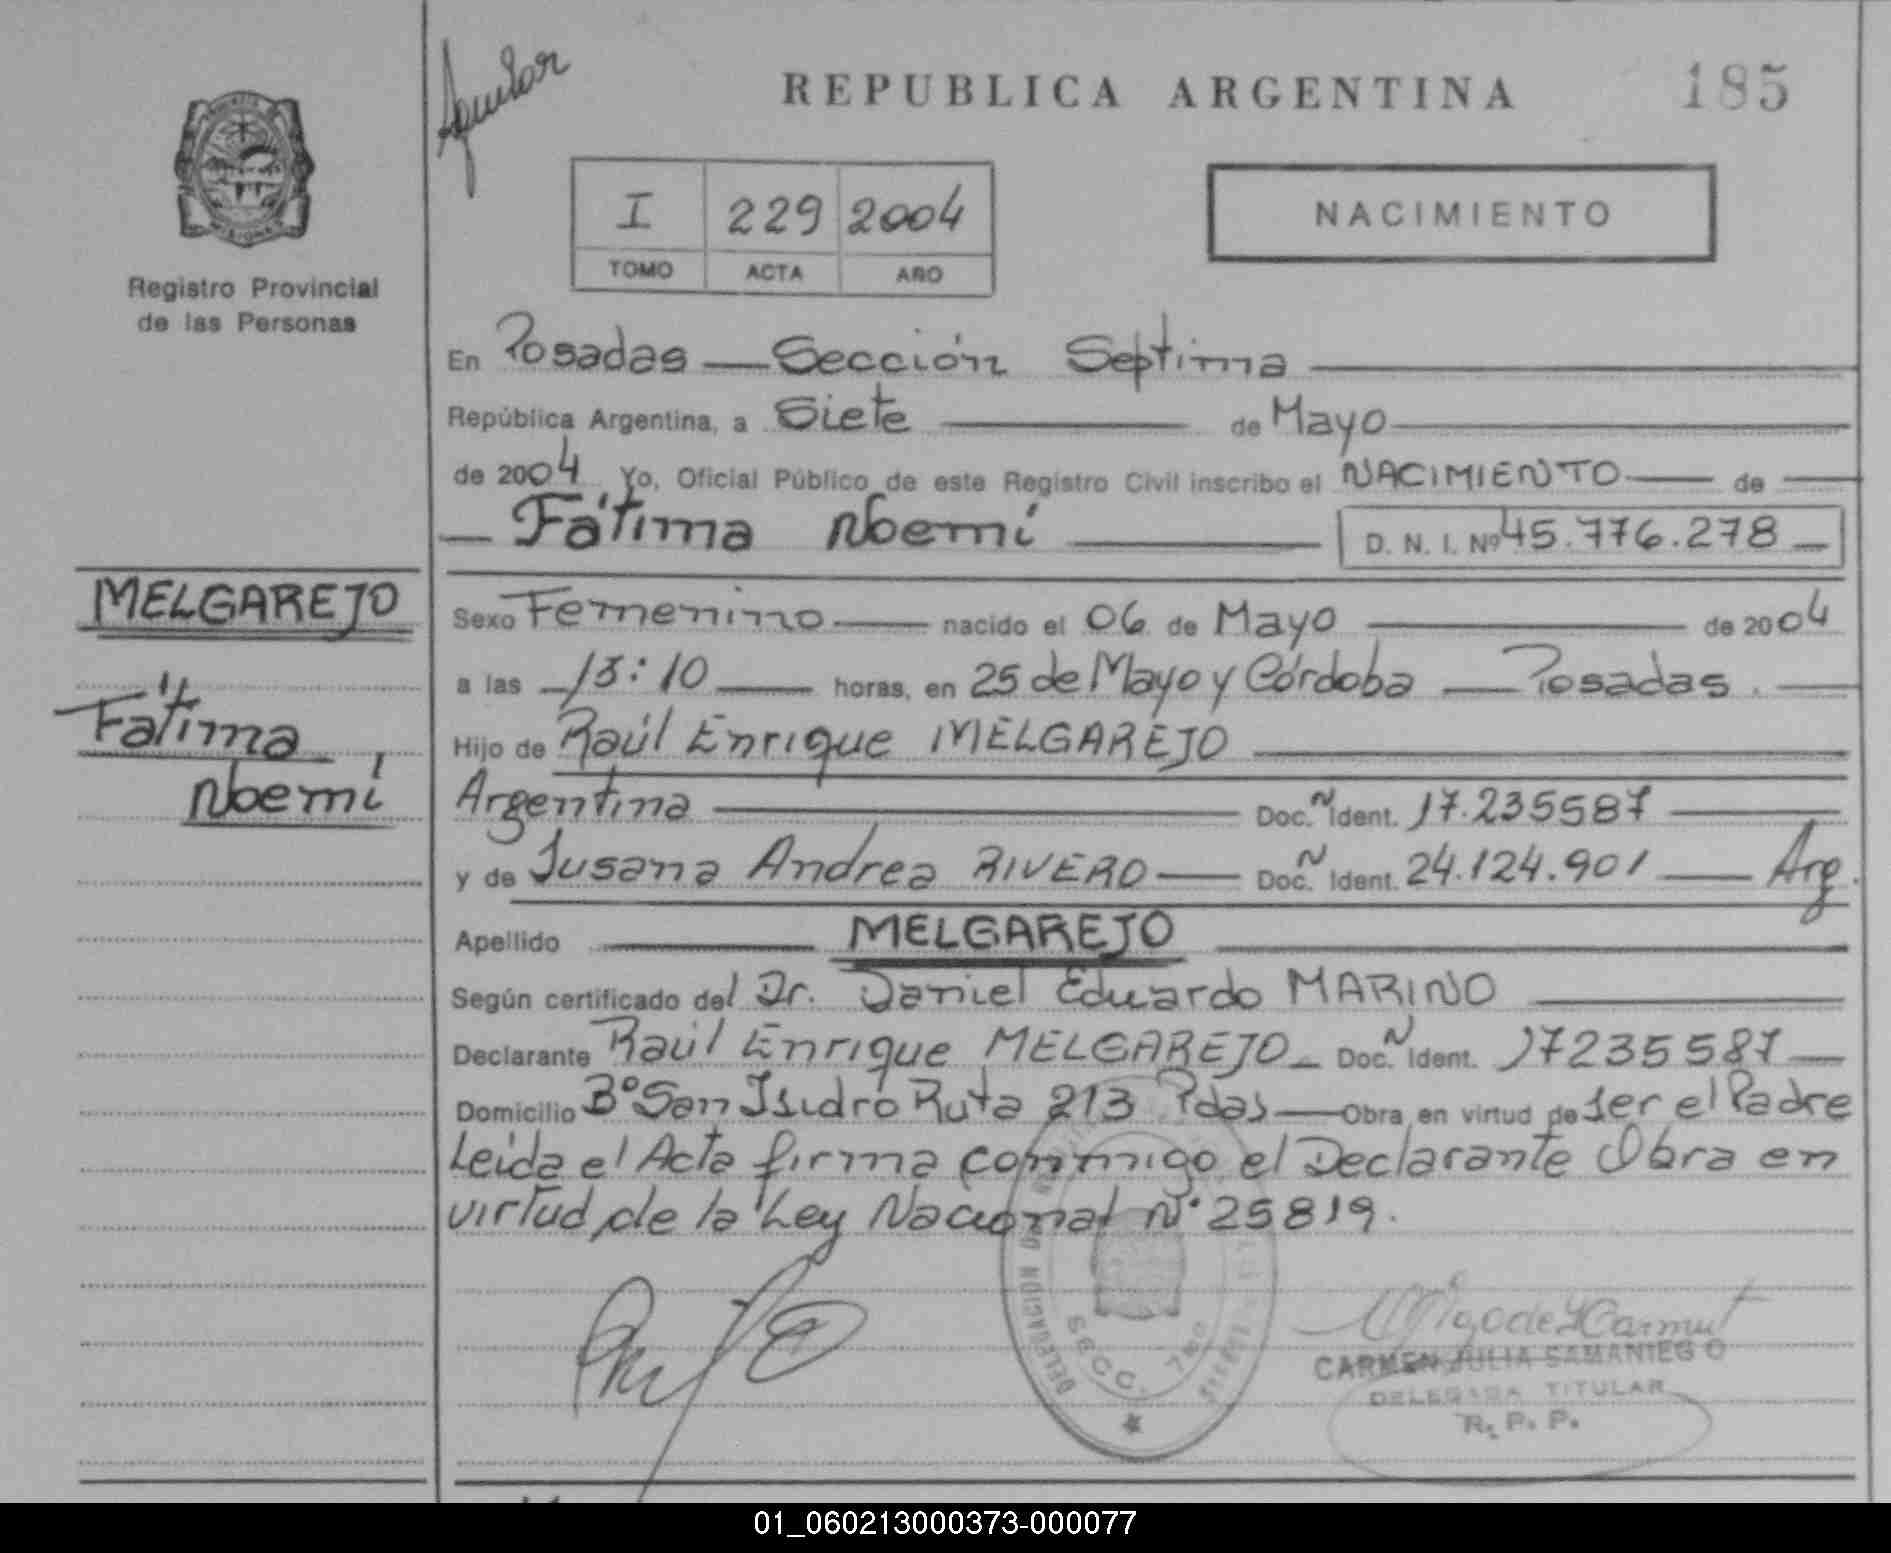 Aguilar
REPUBLICA ARGENTINA
185
MISIONES
Registro Provincial
de las Personas
I 229 2004
TOMO ACTA AÑO
NACIMIENTO
En Posadas — Sección Septima
República Argentina, a Siete de Mayo
de 2004 Yo, Oficial Público de este Registro Civil inscribo el NACIMIENTO de
Fátima Noemí D. N. I. Nº 45.776.278
MELGAREJO
Fátima
Noemí
Sexo Femenino nacido el 06 de Mayo de 2004
a las 13:10 horas, en 25 de Mayo y Córdoba — Posadas.
Hijo de Raúl Enrique MELGAREJO
Argentina Doc. N Ident. 17.235587
y de Susana Andrea RIVERO Doc. N Ident. 24.124.901 Arg.
Apellido MELGAREJO
Según certificado del Dr. Daniel Eduardo MARINO
Declarante Raúl Enrique MELGAREJO Doc. N Ident. 17235587
Domicilio Bº San Isidro Ruta 213 Pdas Obra en virtud de ser el Padre
Leida el Acta firma conmigo el Declarante Obra en
virtud de la Ley Nacional Nº 25819.
DELEGACION
SECC. 7ma
CARMEN JULIA SAMANIEGO
DELEGADA TITULAR
R. P. P.
01_060213000373-000077